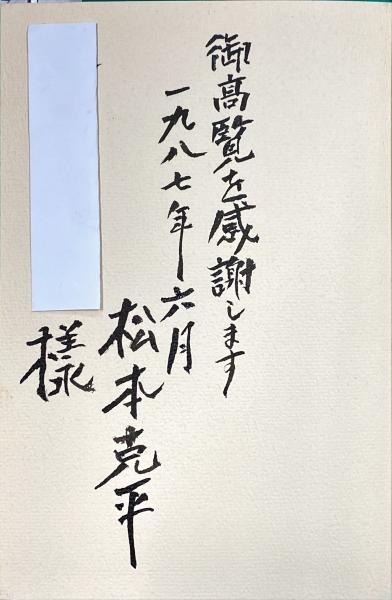 御高覧を感謝します
一九八七年六月
松本克平
様